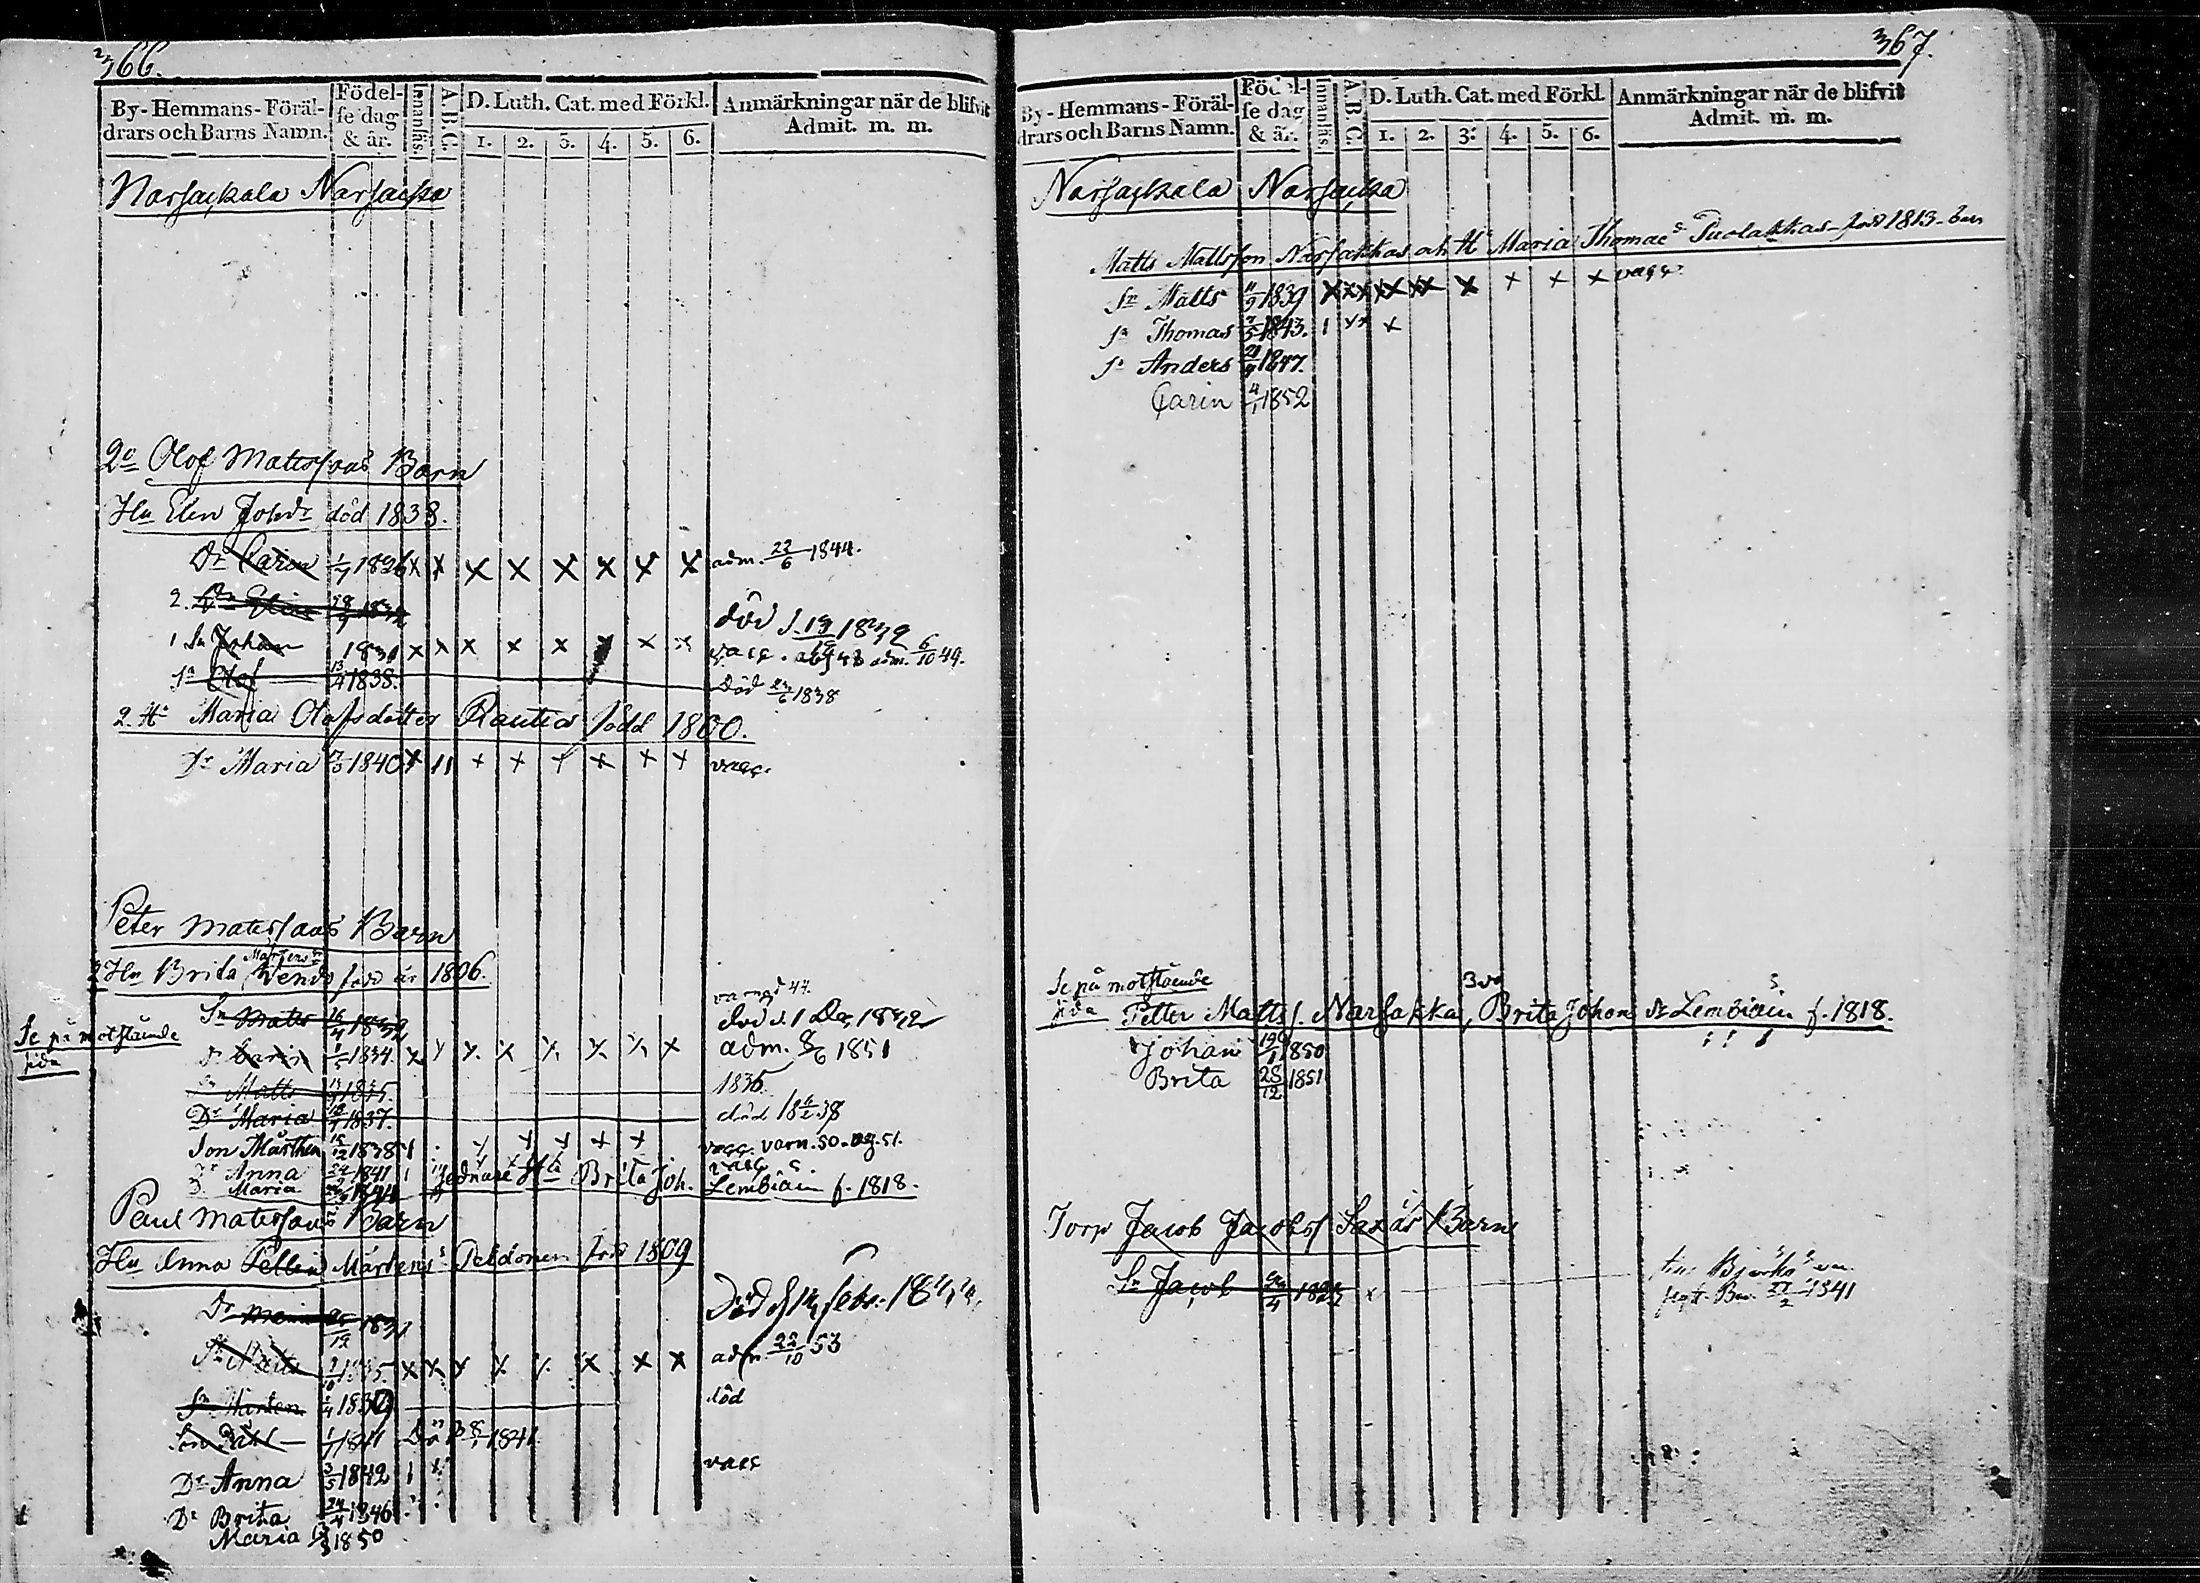 366.
By-Hemmans-Föräl-
drars och Barns Namn.
Födel-
se dag
& år.
Innanläs.
A.B.C.
D. Luth. Cat. med Förkl.
1. 2. 3. 4. 5. 6.
Anmärkningar när de blifvit
Admit. m. m.
Narsackala Narsacka
2e Olof Matsssons Barn
Hu Elen Johdr död 1838.
Dr Carin 1/7 1826 x x x x x x x x adm. 22/6 1844.
2. Dr Elin
död d. 1842
1 Sn Johan 1831 x x x x x x x adm. 6/10 49.
Sn Olof 13/4 1838. Död 23/6 1838
2. Hu Maria Olofsdotter Rautia född 1800.
Dr Maria 1840 x 11 + + + + + + vacc.
Peter Matssons Barn
Mårtens
2 Hu Brita född år 1806.
Se på motstående
sida
varnad 47.
Sn Matts 16/4 1832 död d. 1 Dec. 1832
Dr Carin 1/5 1834. x x x x x x x x adm. 8/6 1851
Sn Matts 1835. 1835.
Dr Maria 1837. död 38
Son Mårthen 15/12 1838 1 vacc. varn. 50.
Dr Anna 24/ 1841 1 vacc.
D. Maria
Hu Brita Joh. Lembiäin f. 1818.
Paul Matssons Barn
Hu Anna Pellin Mårtens Peldonen född 1809
Dr 1831 Död d. 14 febr.
Sn Matts 1835. x x x x x x x x adm. 22/10 53
Sn Mårten 1/4 1839 död
Son Påhl 1/1 1841 Död 1841
Dr Anna 3/5 1842 1 x vacc
Dr Brita 24/4 1846
Maria 1850
367.
By-Hemmans-Föräl-
drars och Barns Namn.
Födel-
se dag
& är.
Innanläs.
A.B.C.
D. Luth. Cat. med Förkl.
1. 2. 3. 4. 5. 6.
Anmärkningar när de blifvit
Admit. m. m.
Narsackala Narsacka
Matts Mattsson Narsakkas och Hu Maria Thomae dr Puolakkas född 1813
Sn Matts 11/9 1839 x x x x x x x + + + vacc.
Sn Thomas 7/5 1843. 1 x x x
Sn Anders 21/9 1847.
Carin 4/1 1852
Se på motstående
sida
Petter Matts s. Narsakka, Brita Johans dr Lembiäin f. 1818.
Johan 19/1 1850
Brita 28/12 1851
Torp Jacob Jacobss Saxas Barn
Sn Jacob
till Björkö
27/2 1841